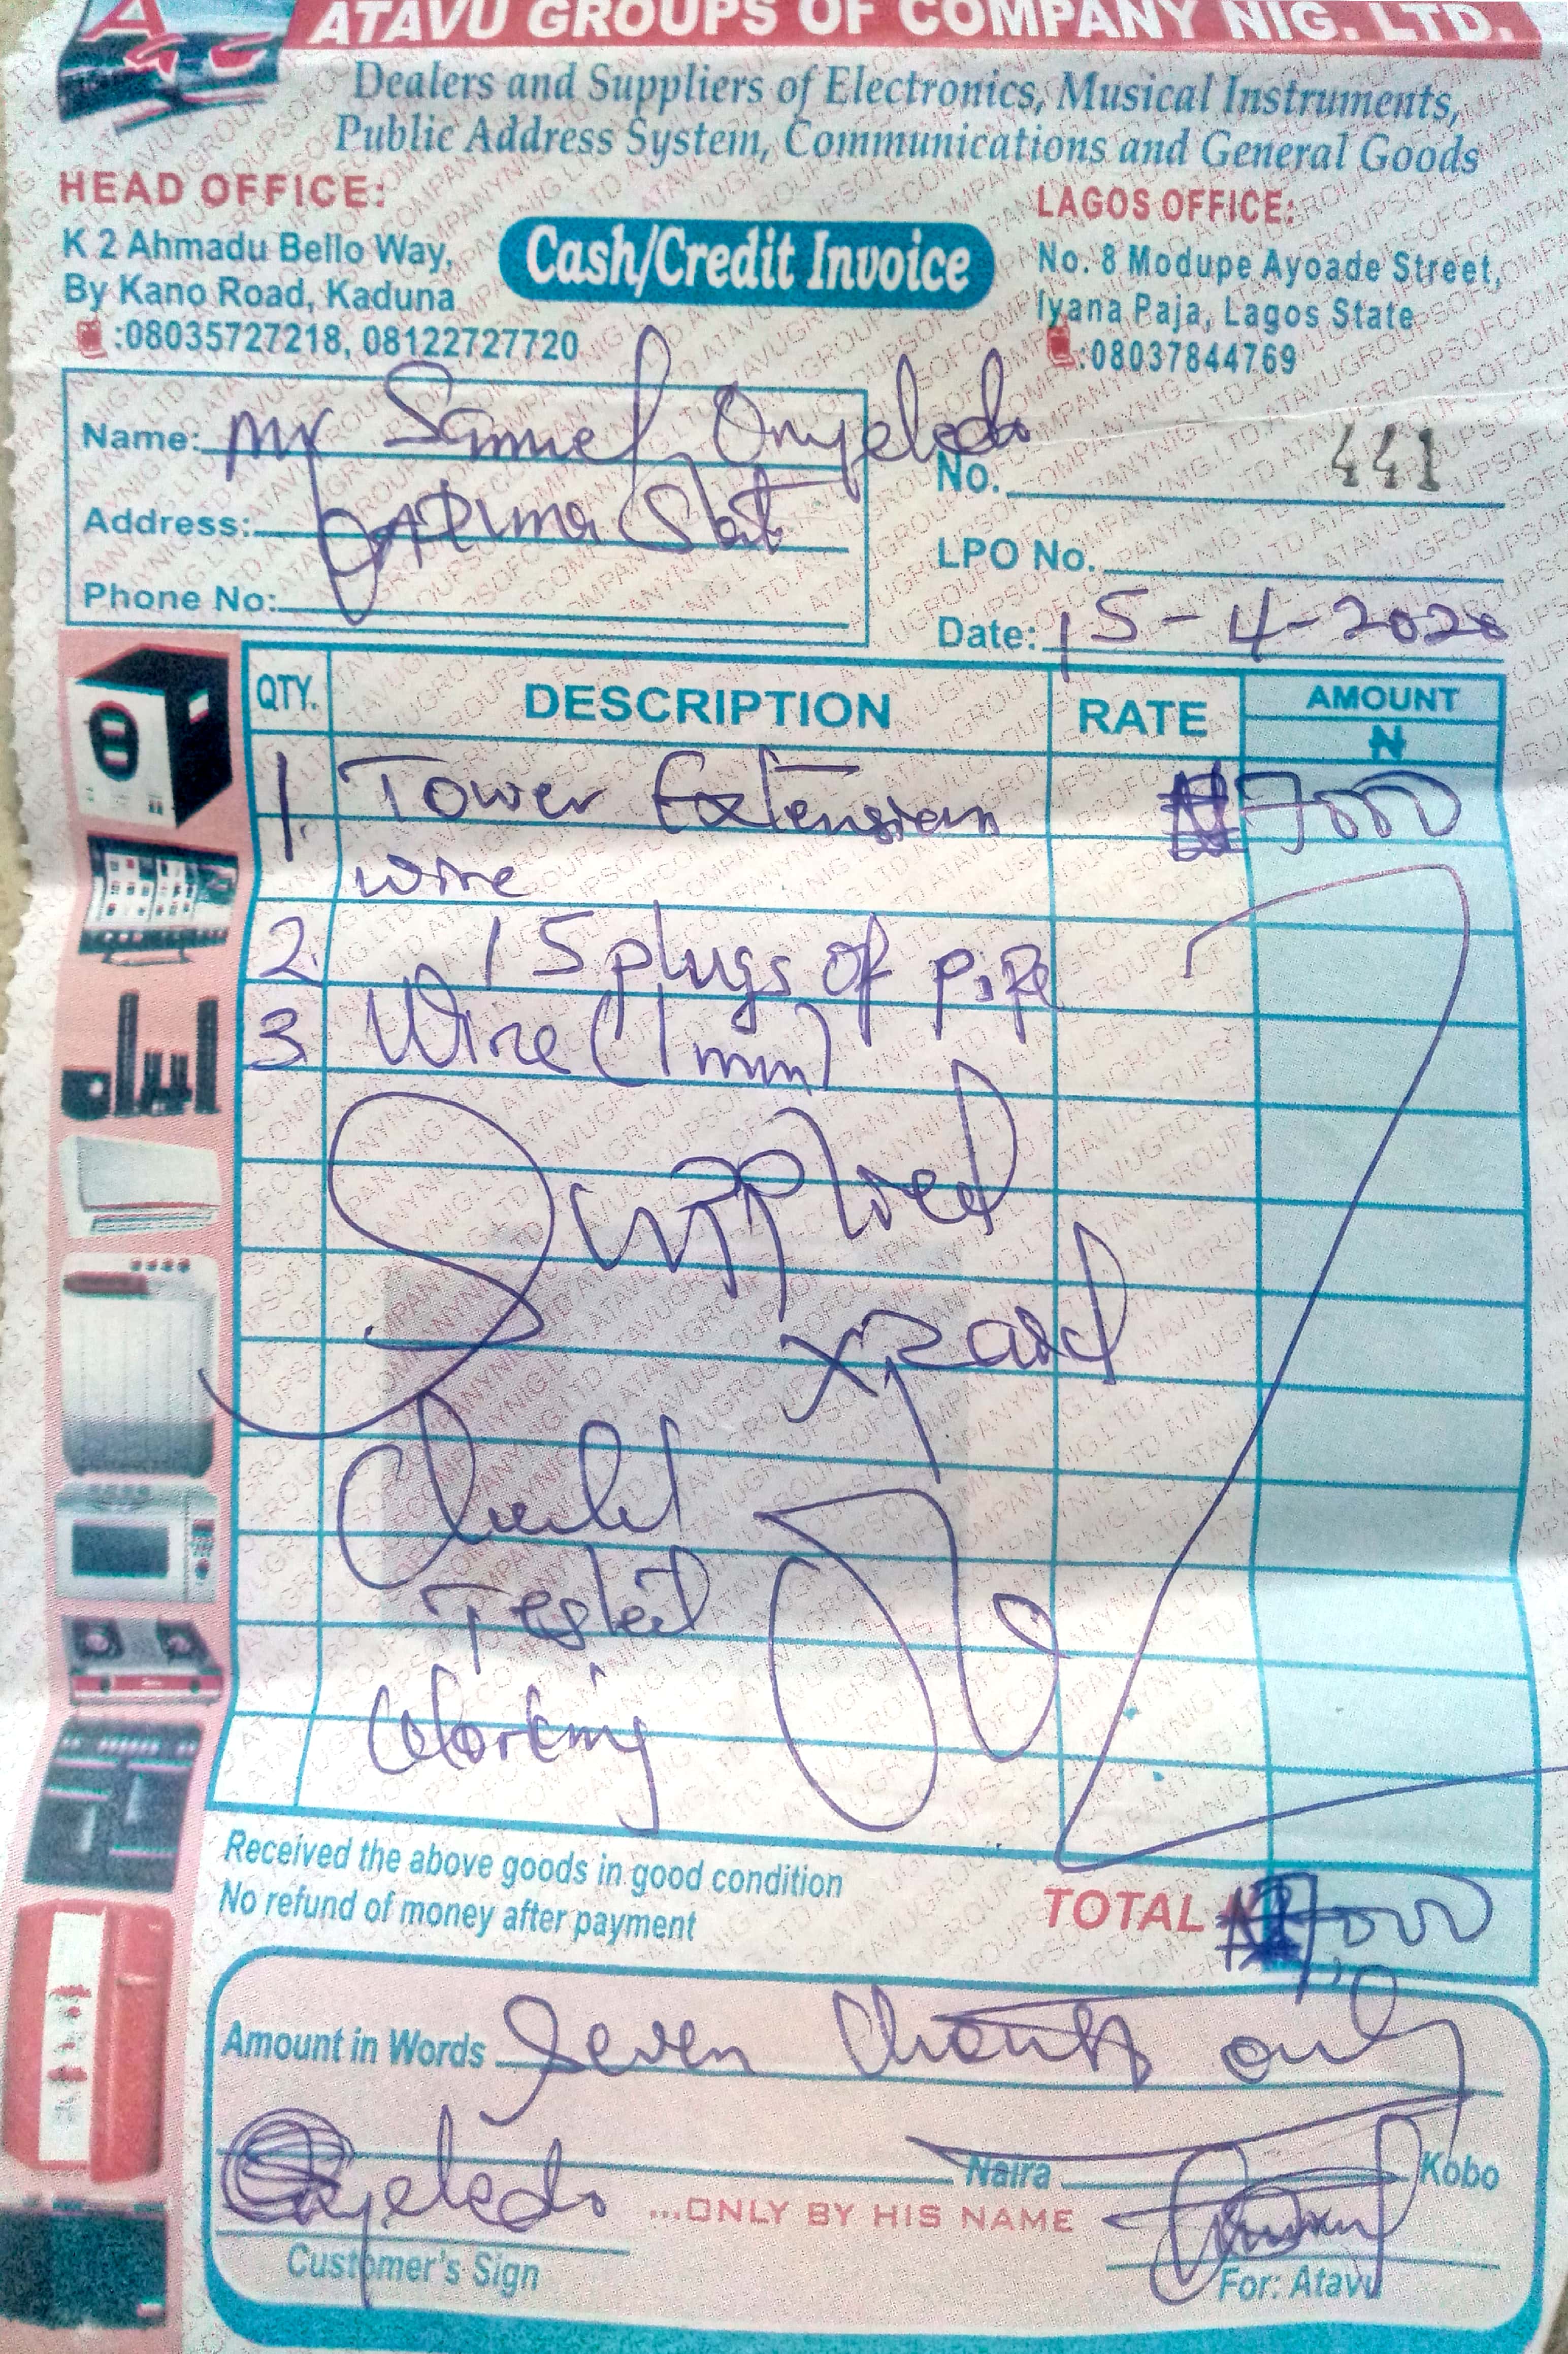 ATAVU GROUPS OF COMPANY NIG. LTD.
Dealers and Suppliers of Electronics, Musical Instruments,
Public Address System, Communications and General Goods
HEAD OFFICE:
K 2 Ahmadu Bello Way,
By Kano Road, Kaduna
:08035727218, 08122727720
Cash/Credit Invoice
LAGOS OFFICE:
No. 8 Modupe Ayoade Street,
Iyana Paja, Lagos State
:08037844769
Name: Mr Samuel Onyeledo
Address:
Phone No:
No. 441
LPO No.
Date: 15-4-2020
QTY. DESCRIPTION RATE AMOUNT
₦
1. Tower Extension ₦7000
wire
2. 15 plugs of pipe
3. Wire (1mm)
Supplied
Tested
Working
Received the above goods in good condition
No refund of money after payment
TOTAL ₦7,000
Amount in Words Seven only
Naira Kobo
Onyeledo ...ONLY BY HIS NAME
Customer's Sign For: Atavu